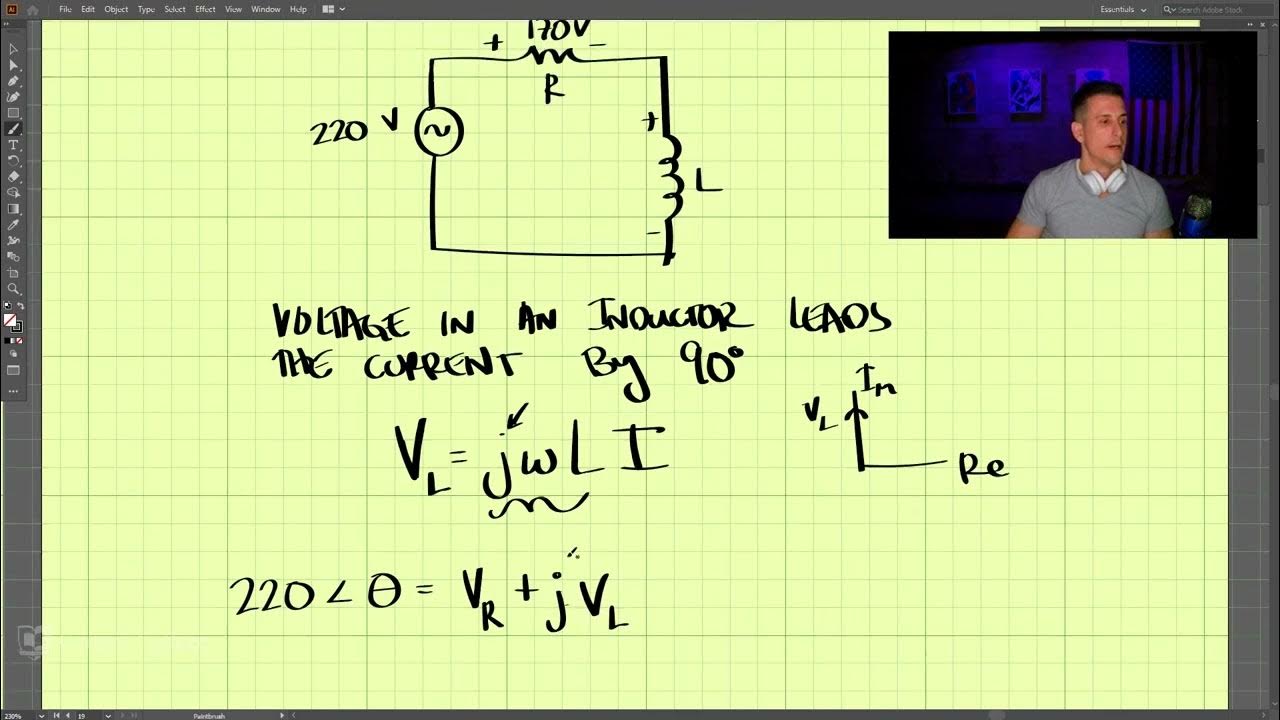 File Edit Object Type Select Effect View Window Help
Essentials
Search Adobe Stock
170V
+ −
R
220 V
+
L
−
VOLTAGE IN AN INDUCTOR LEADS
THE CURRENT By 90°
Im
VL
Re
VL = jωL I
220 < θ = VR + jVL
230%
19
Paintbrush